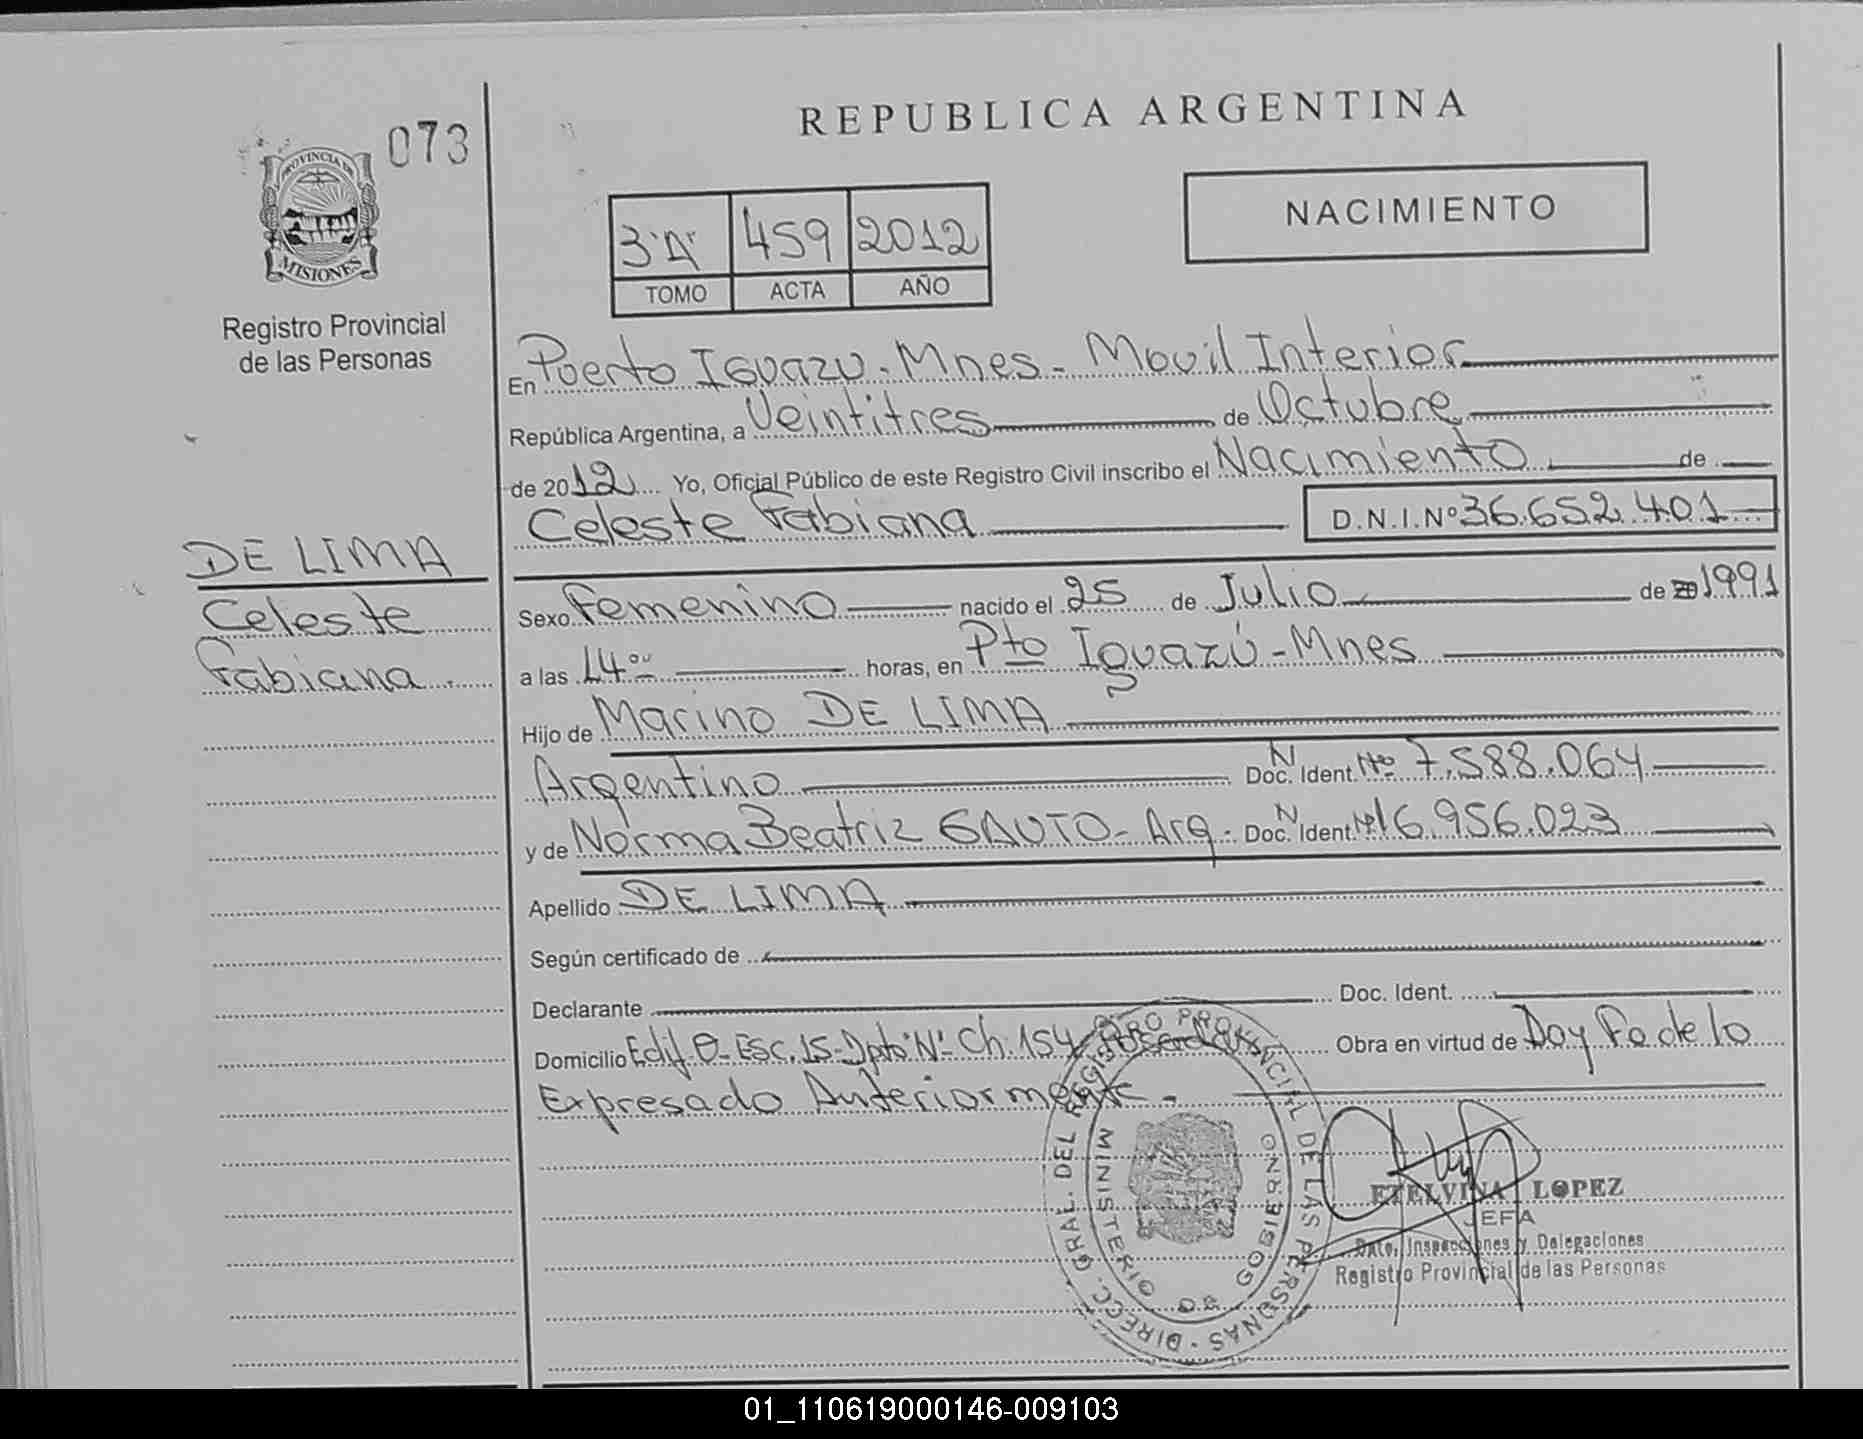 REPUBLICA ARGENTINA
073
PROVINCIA DE
MISIONES
Registro Provincial
de las Personas
NACIMIENTO
3"A" 459 2012
TOMO ACTA AÑO
En Puerto Iguazu - Mnes - Movil Interior
República Argentina, a Veintitres de Octubre
de 2012 Yo, Oficial Público de este Registro Civil inscribo el Nacimiento de
Celeste Fabiana D.N.I. Nº 36.652.401
DE LIMA
Celeste
Fabiana.
Sexo Femenino nacido el 25 de Julio de 1991
a las 14ºº horas, en Pto Iguazú - Mnes
Hijo de Marino DE LIMA
Argentino Doc. N Ident. Nº 7.588.064
y de Norma Beatriz GAUTO - Arg - Doc. N Ident. Nº 16.956.023
Apellido DE LIMA
Según certificado de
Declarante Doc. Ident.
Domicilio Edif. O - Esc. 15 - Dpto "N" - Ch. 154 Obra en virtud de Doy Fe de lo
Expresado Anteriormente -
DIRECC. GRAL. DEL REGISTRO PROVINCIAL DE LAS PERSONAS
MINISTERIO DE GOBIERNO
ETELVINA LOPEZ
JEFA
Dpto. Inspecciones y Delegaciones
Registro Provincial de las Personas
01_110619000146-009103